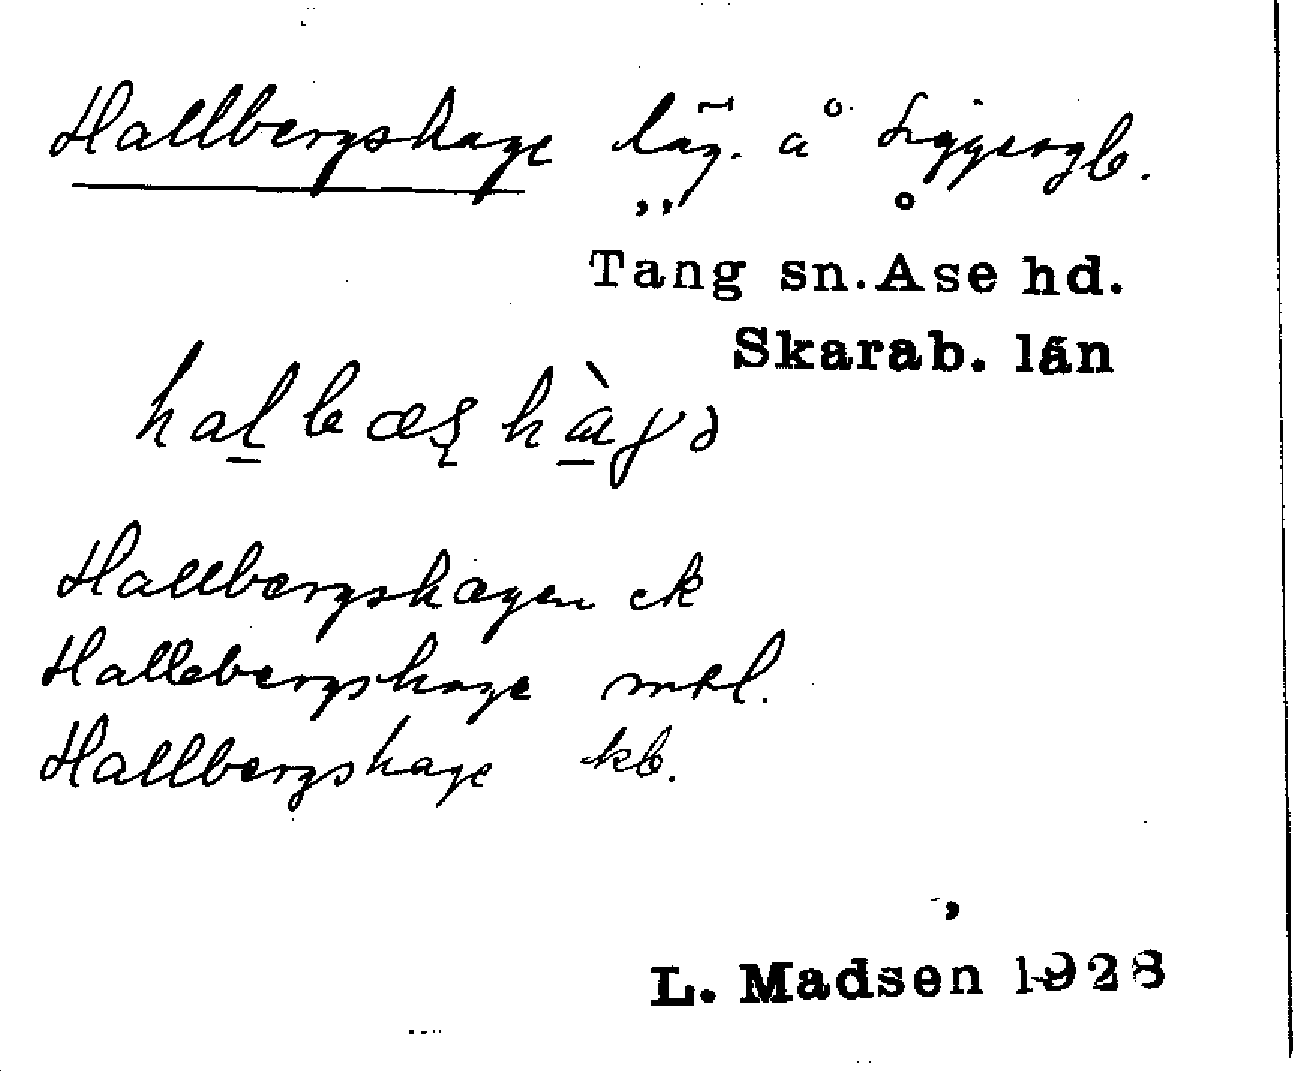 Hallbergshage läg. å
Täng sn. Åse hd.
Skarab. län
halbæʂhàgə
Hallbergshagen ek
Hallebergshage mtl.
Hallbergshage kb.
L. Madsen 1928